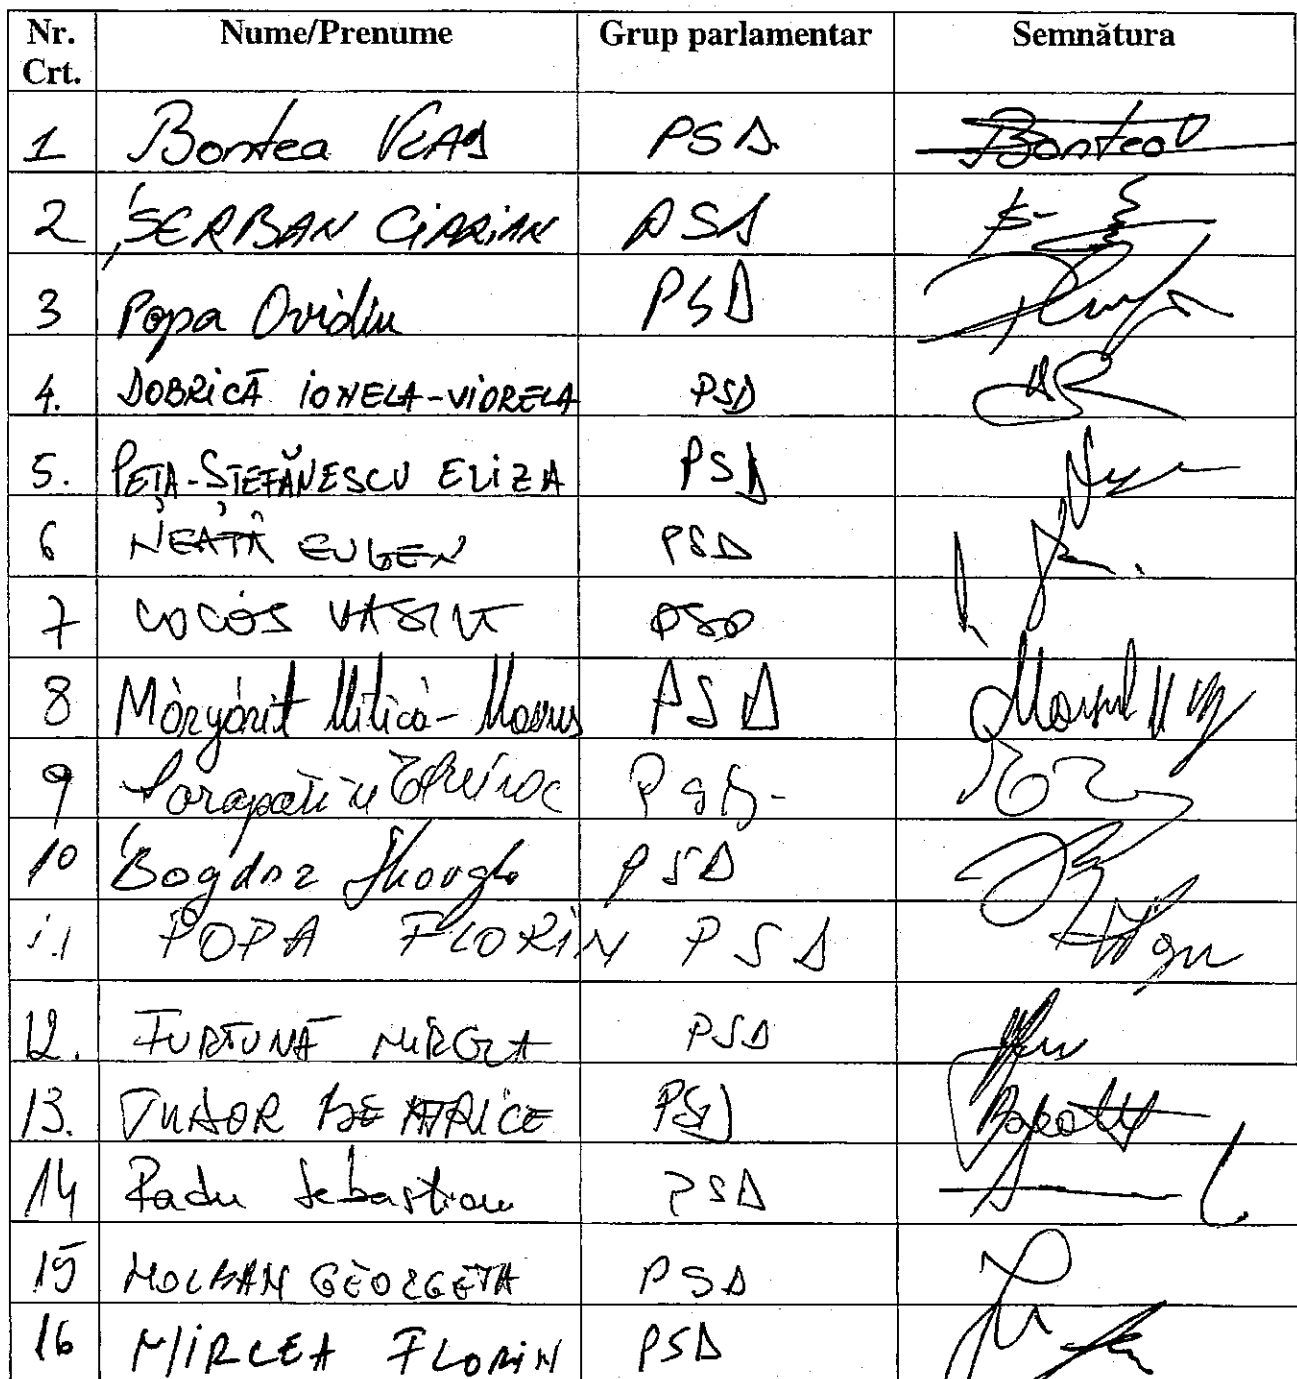 Nr. Crt. Nume/Prenume Grup parlamentar Semnătura
1 Bontea Vlad PSD Bontea
2 ȘERBAN CIPRIAN PSD
3 Popa Ovidiu PSD
4. DOBRICĂ IONELA-VIORELA PSD
5. PEȚA-ȘTEFĂNESCU ELIZA PSD
6 NEAȚĂ EUGEN PSD
7 COCOȘ VASILE PSD
8 Mărgărit Mitică-Marius PSD
9 PSD-
10 Bogdan Gheorghe PSD
11 POPA FLORIN PSD
12. FURTUNĂ MIRELA PSD
13. TUDOR BEATRICE PSD
14 Radu Sebastian PSD
15 MOLBAN GEORGETA PSD
16 MIRCEA FLORIN PSD